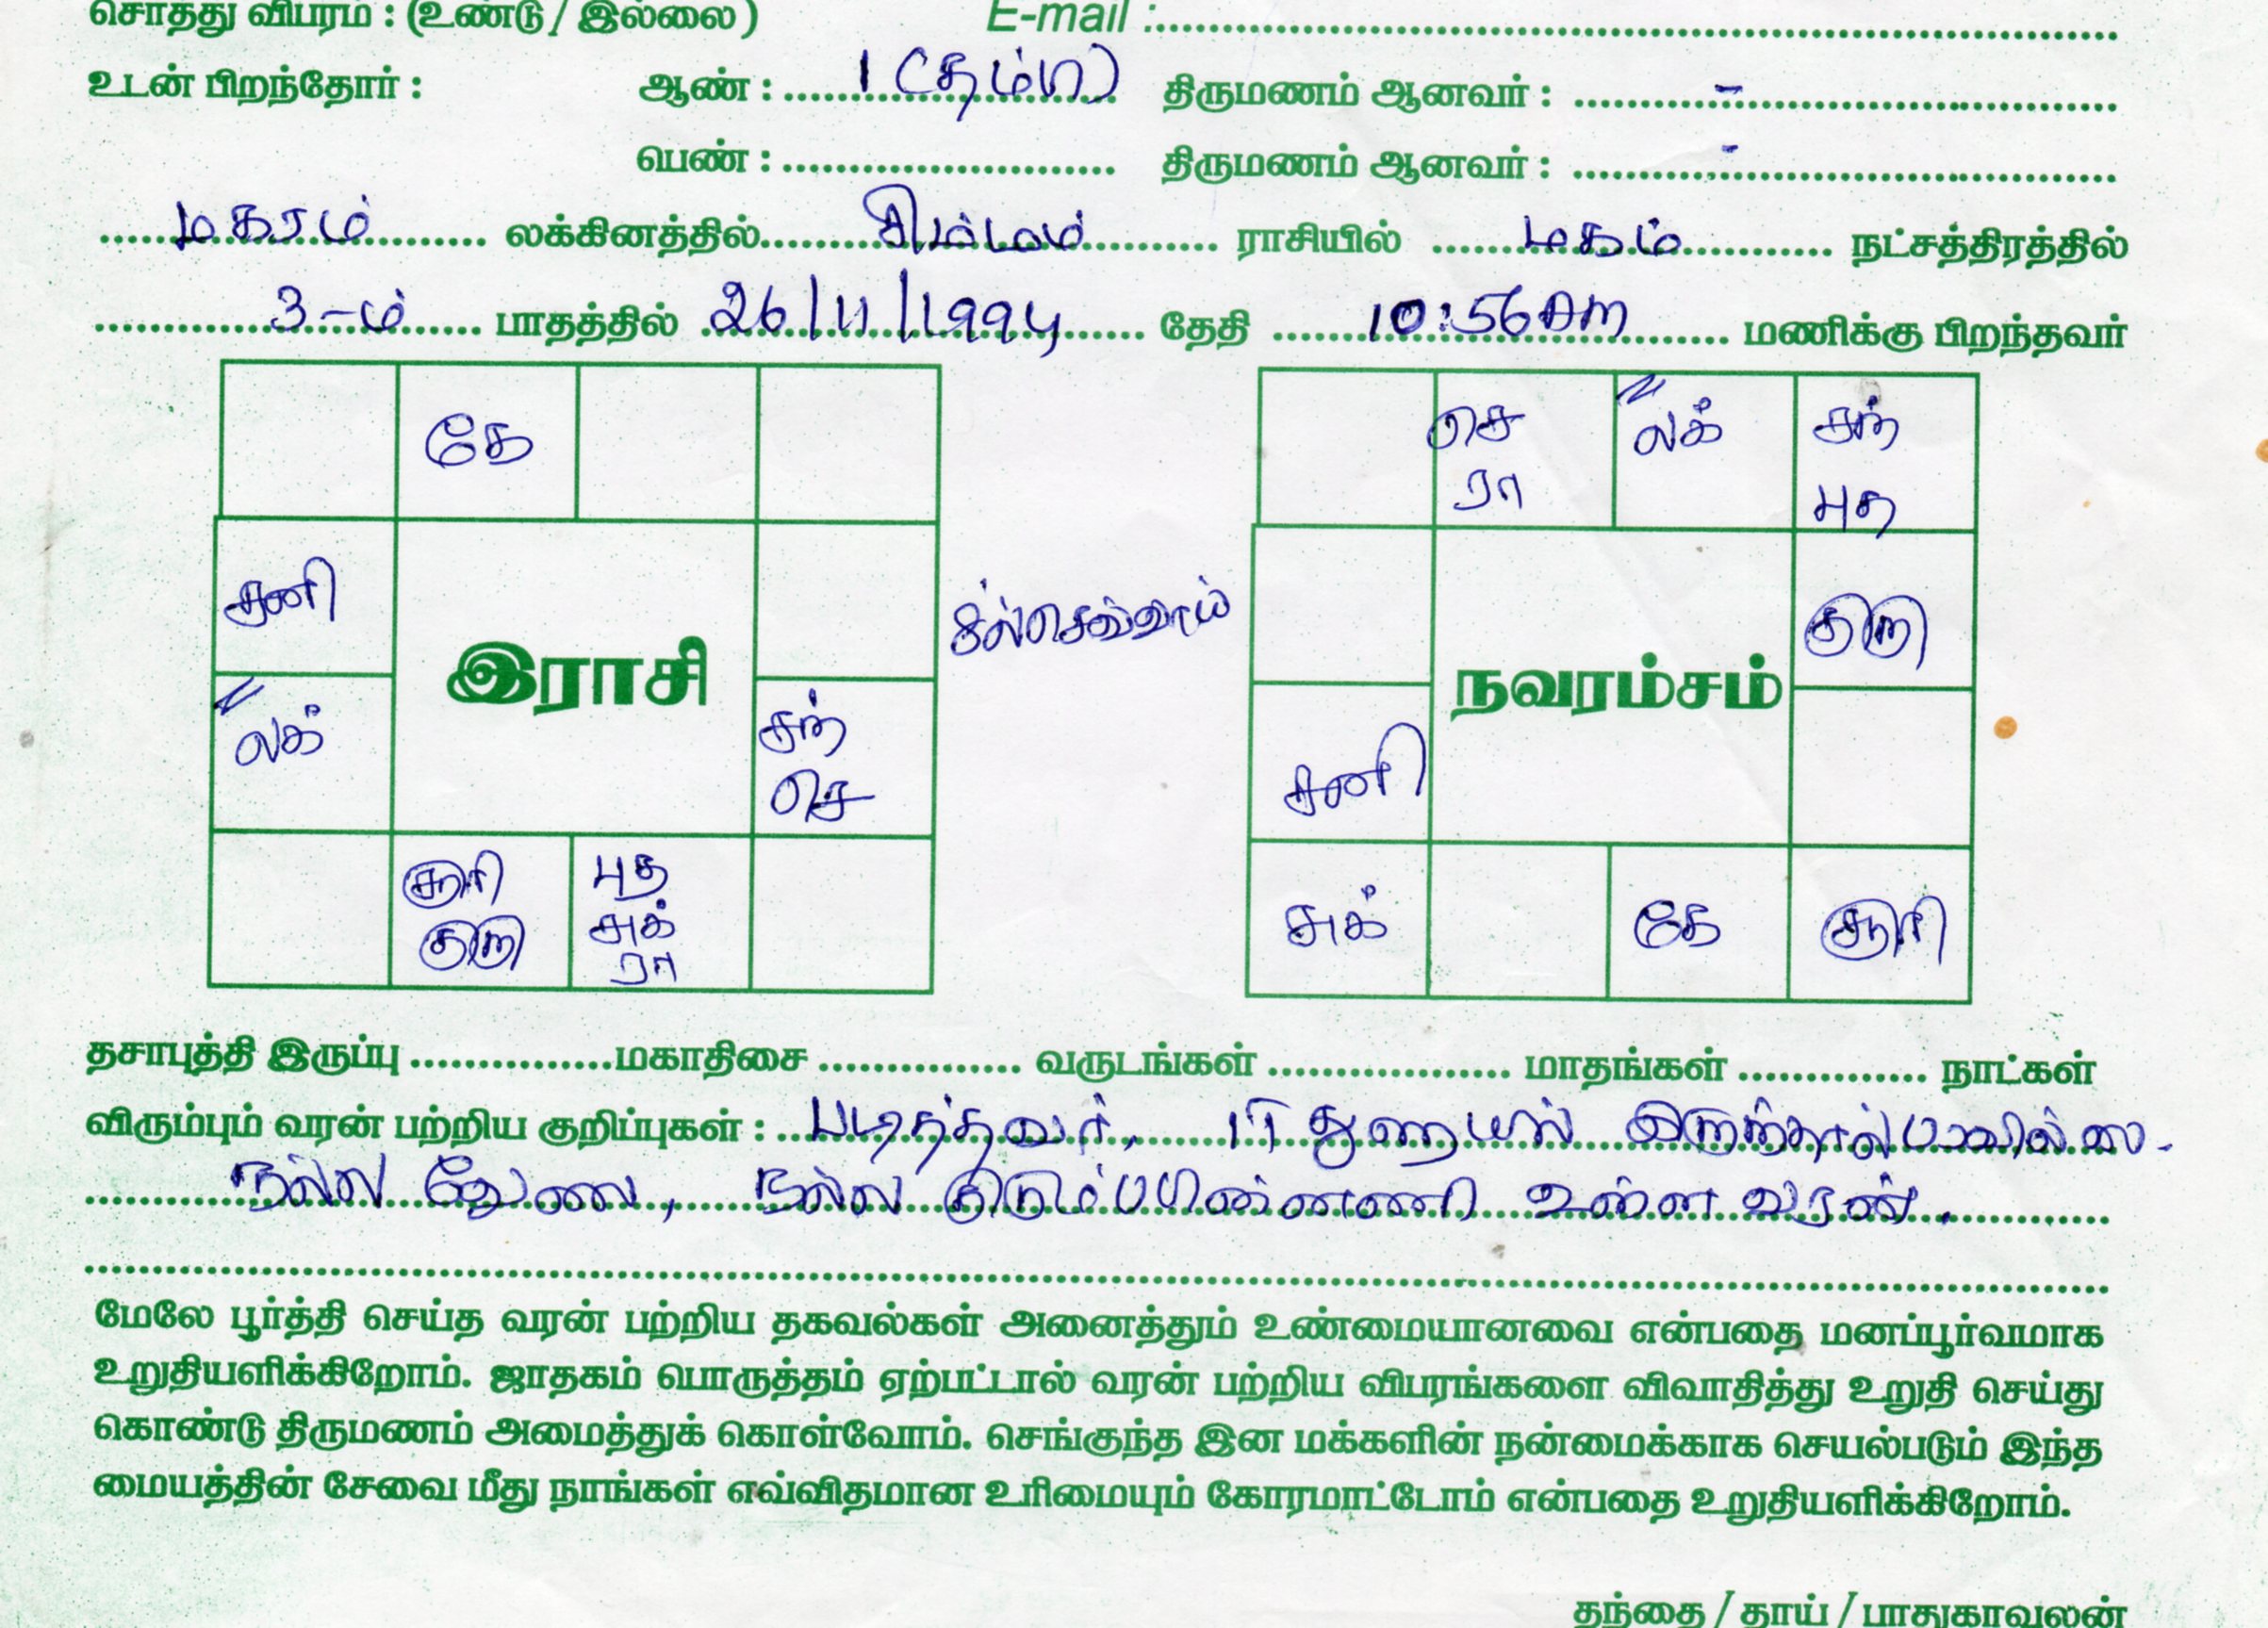 சொத்து விபரம் : (உண்டு / இல்லை) E-mail :
உடன் பிறந்தோர் : ஆண் : 1 (தம்பி) திருமணம் ஆனவர் : -
பெண் : திருமணம் ஆனவர் : -
மகரம் லக்கினத்தில் சிம்மம் ராசியில் மகம் நட்சத்திரத்தில்
3-ம் பாதத்தில் 26/11/1994 தேதி 10:56 AM மணிக்கு பிறந்தவர்
கே
சனி
இராசி
லக்
சந்
செ
சூரி
குரு
புத
சுக்
ரா
செ
ரா
லக்
சந்
புத
குரு
நவரம்சம்
சனி
சுக்
கே
சூரி
தசாபுத்தி இருப்பு மகாதிசை வருடங்கள் மாதங்கள் நாட்கள்
விரும்பும் வரன் பற்றிய குறிப்புகள் : படித்தவர், IT துறையில் இருந்தால் பரவாயில்லை.
நல்ல வேலை, நல்ல குடும்ப பின்னணி உள்ள வரன்.
மேலே பூர்த்தி செய்த வரன் பற்றிய தகவல்கள் அனைத்தும் உண்மையானவை என்பதை மனப்பூர்வமாக
உறுதியளிக்கிறோம். ஜாதகம் பொருத்தம் ஏற்பட்டால் வரன் பற்றிய விபரங்களை விவாதித்து உறுதி செய்து
கொண்டு திருமணம் அமைத்துக் கொள்வோம். செங்குந்த இன மக்களின் நன்மைக்காக செயல்படும் இந்த
மையத்தின் சேவை மீது நாங்கள் எவ்விதமான உரிமையும் கோரமாட்டோம் என்பதை உறுதியளிக்கிறோம்.
தந்தை / தாய் / பாதுகாவலன்